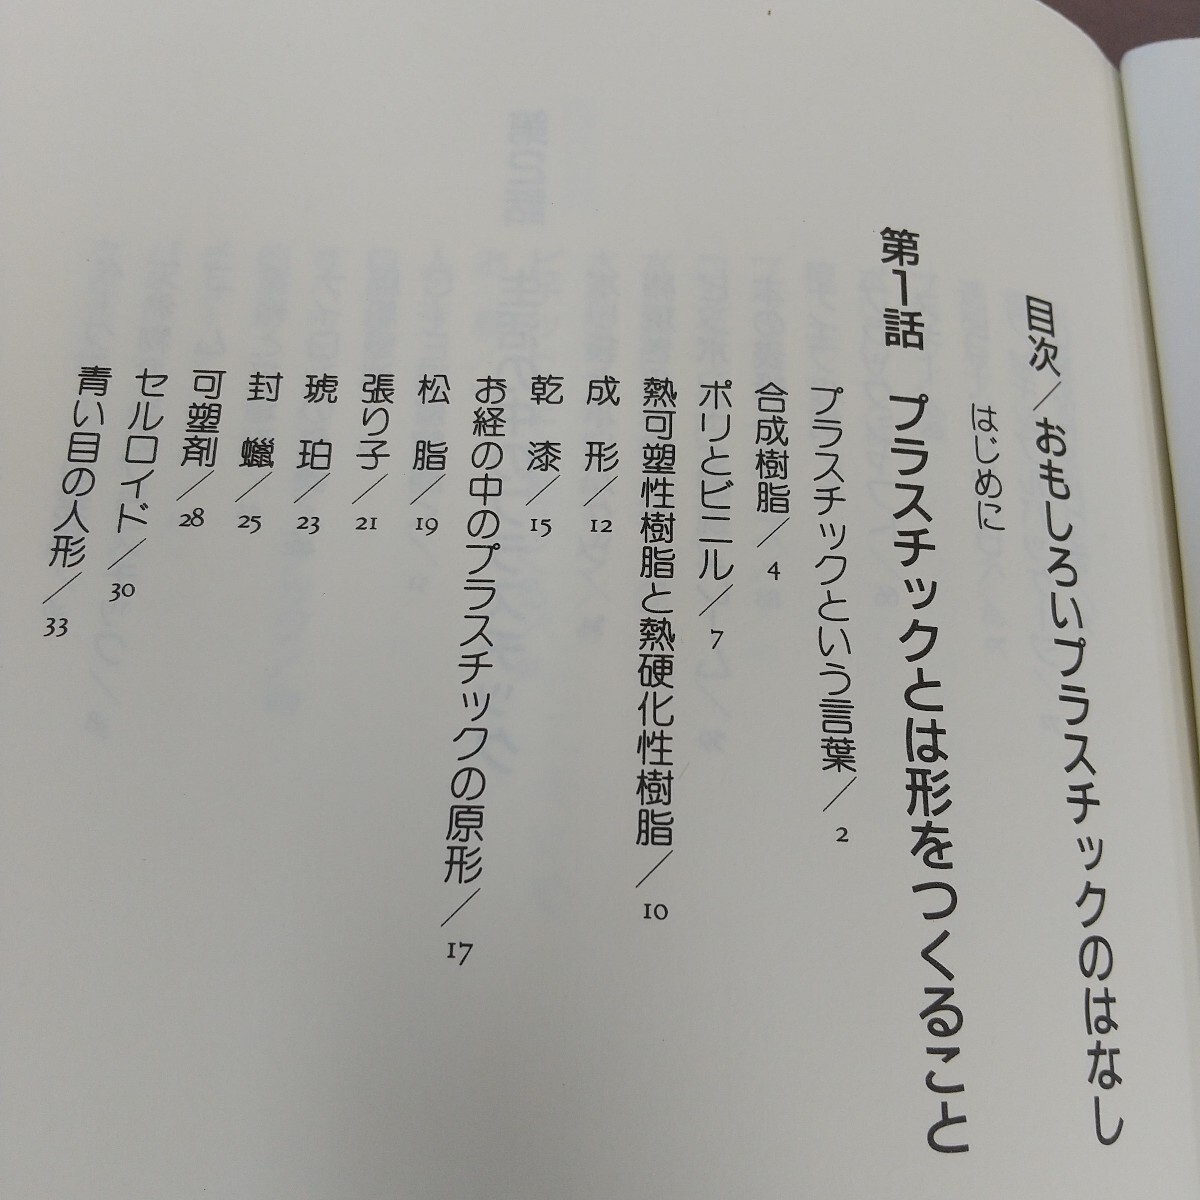 目次／おもしろいプラスチックのはなし
はじめに
第1話 プラスチックとは形をつくること
プラスチックという言葉／2
合成樹脂／4
ポリとビニル／7
熱可塑性樹脂と熱硬化性樹脂／10
成 形／12
乾 漆／15
お経の中のプラスチックの原形／17
松 脂／19
張り子／21
琥 珀／23
封 蠟／25
可塑剤／28
セルロイド／30
青い目の人形／33